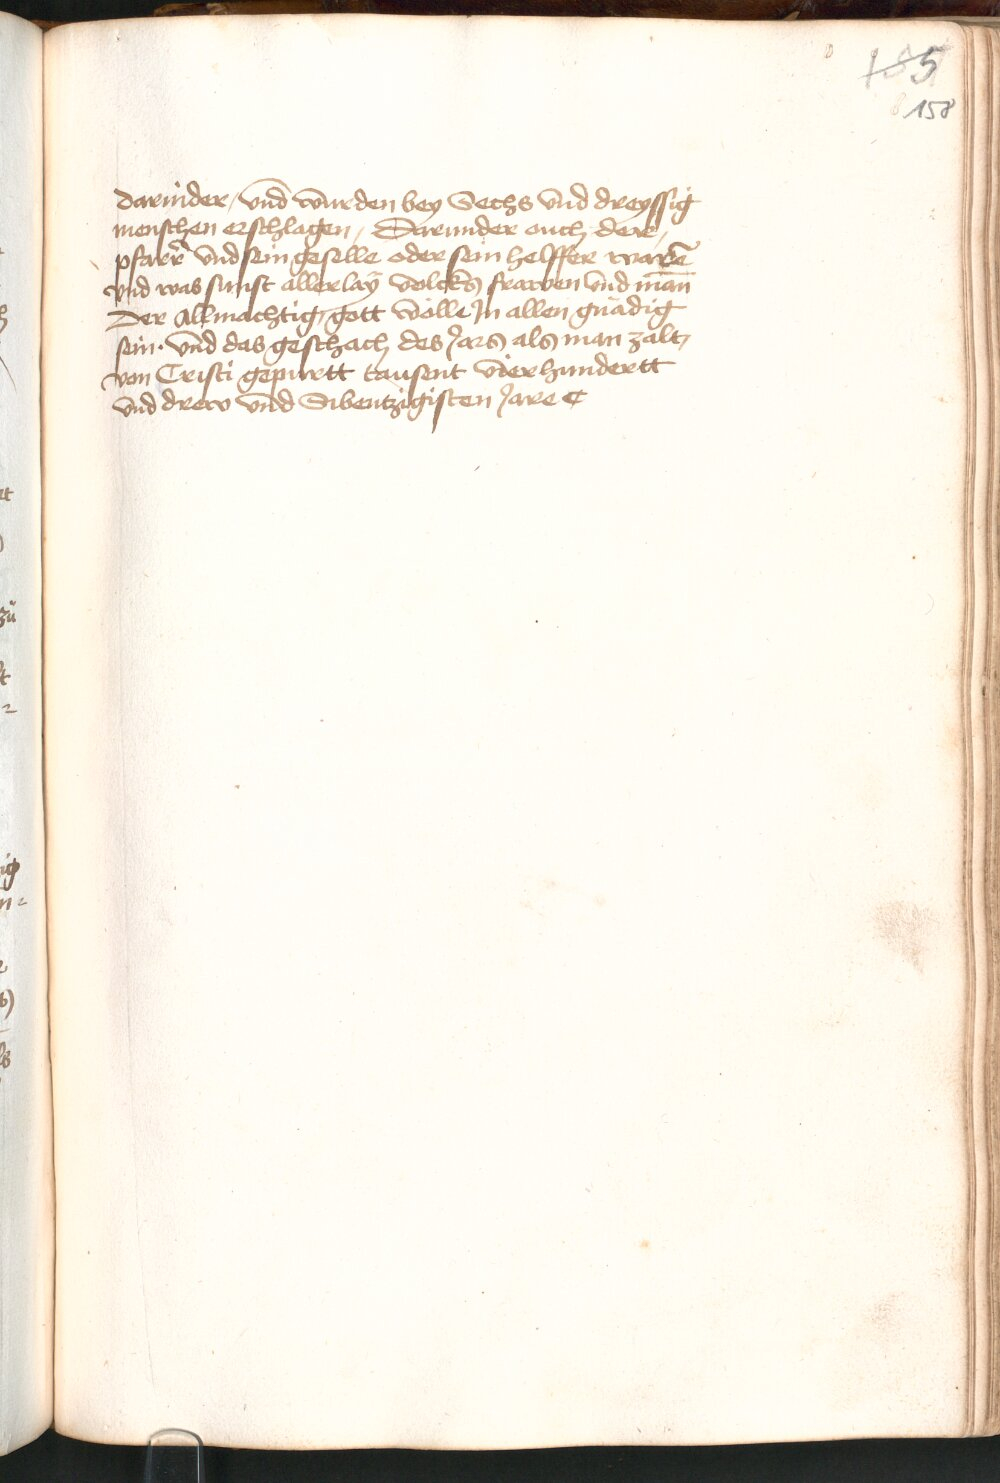 185
158
darinder, vnd wurden bey Sechs vnd dreyssig
menschen erschlagen, Darinder auch der,
pfarr̃ vnd sein geselle oder sein helffer warẽ
vnd was sunst allerlaÿ volcks frawen vnd mañ
Der Allmachtig, gott wölle Jn allen gnädig
sein. vnd das geschach des Jars als man zalt,
von Cristi gepurtt tausent vierhundertt
vnd drew vnd Sibentzigisten Jare
zů